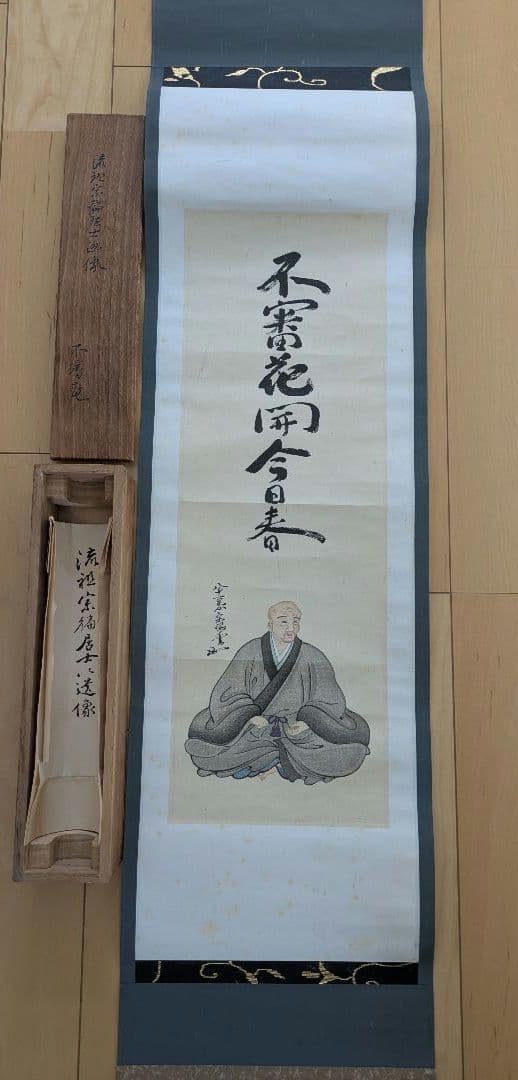 不審花開今日春
流祖宗徧居士画像
不審庵
流祖宗徧居士之遺像